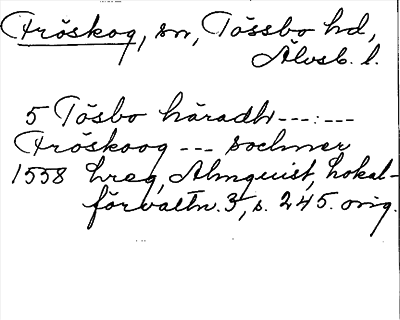 Fröskog, sn, Tössbo hd,
Älvsb. l.
5 Tösbo häradh ---:---
Fröskoog --- sochner
1558 hreg, Almquist, Lokal-
förvaltn. 3, s. 245. orig.